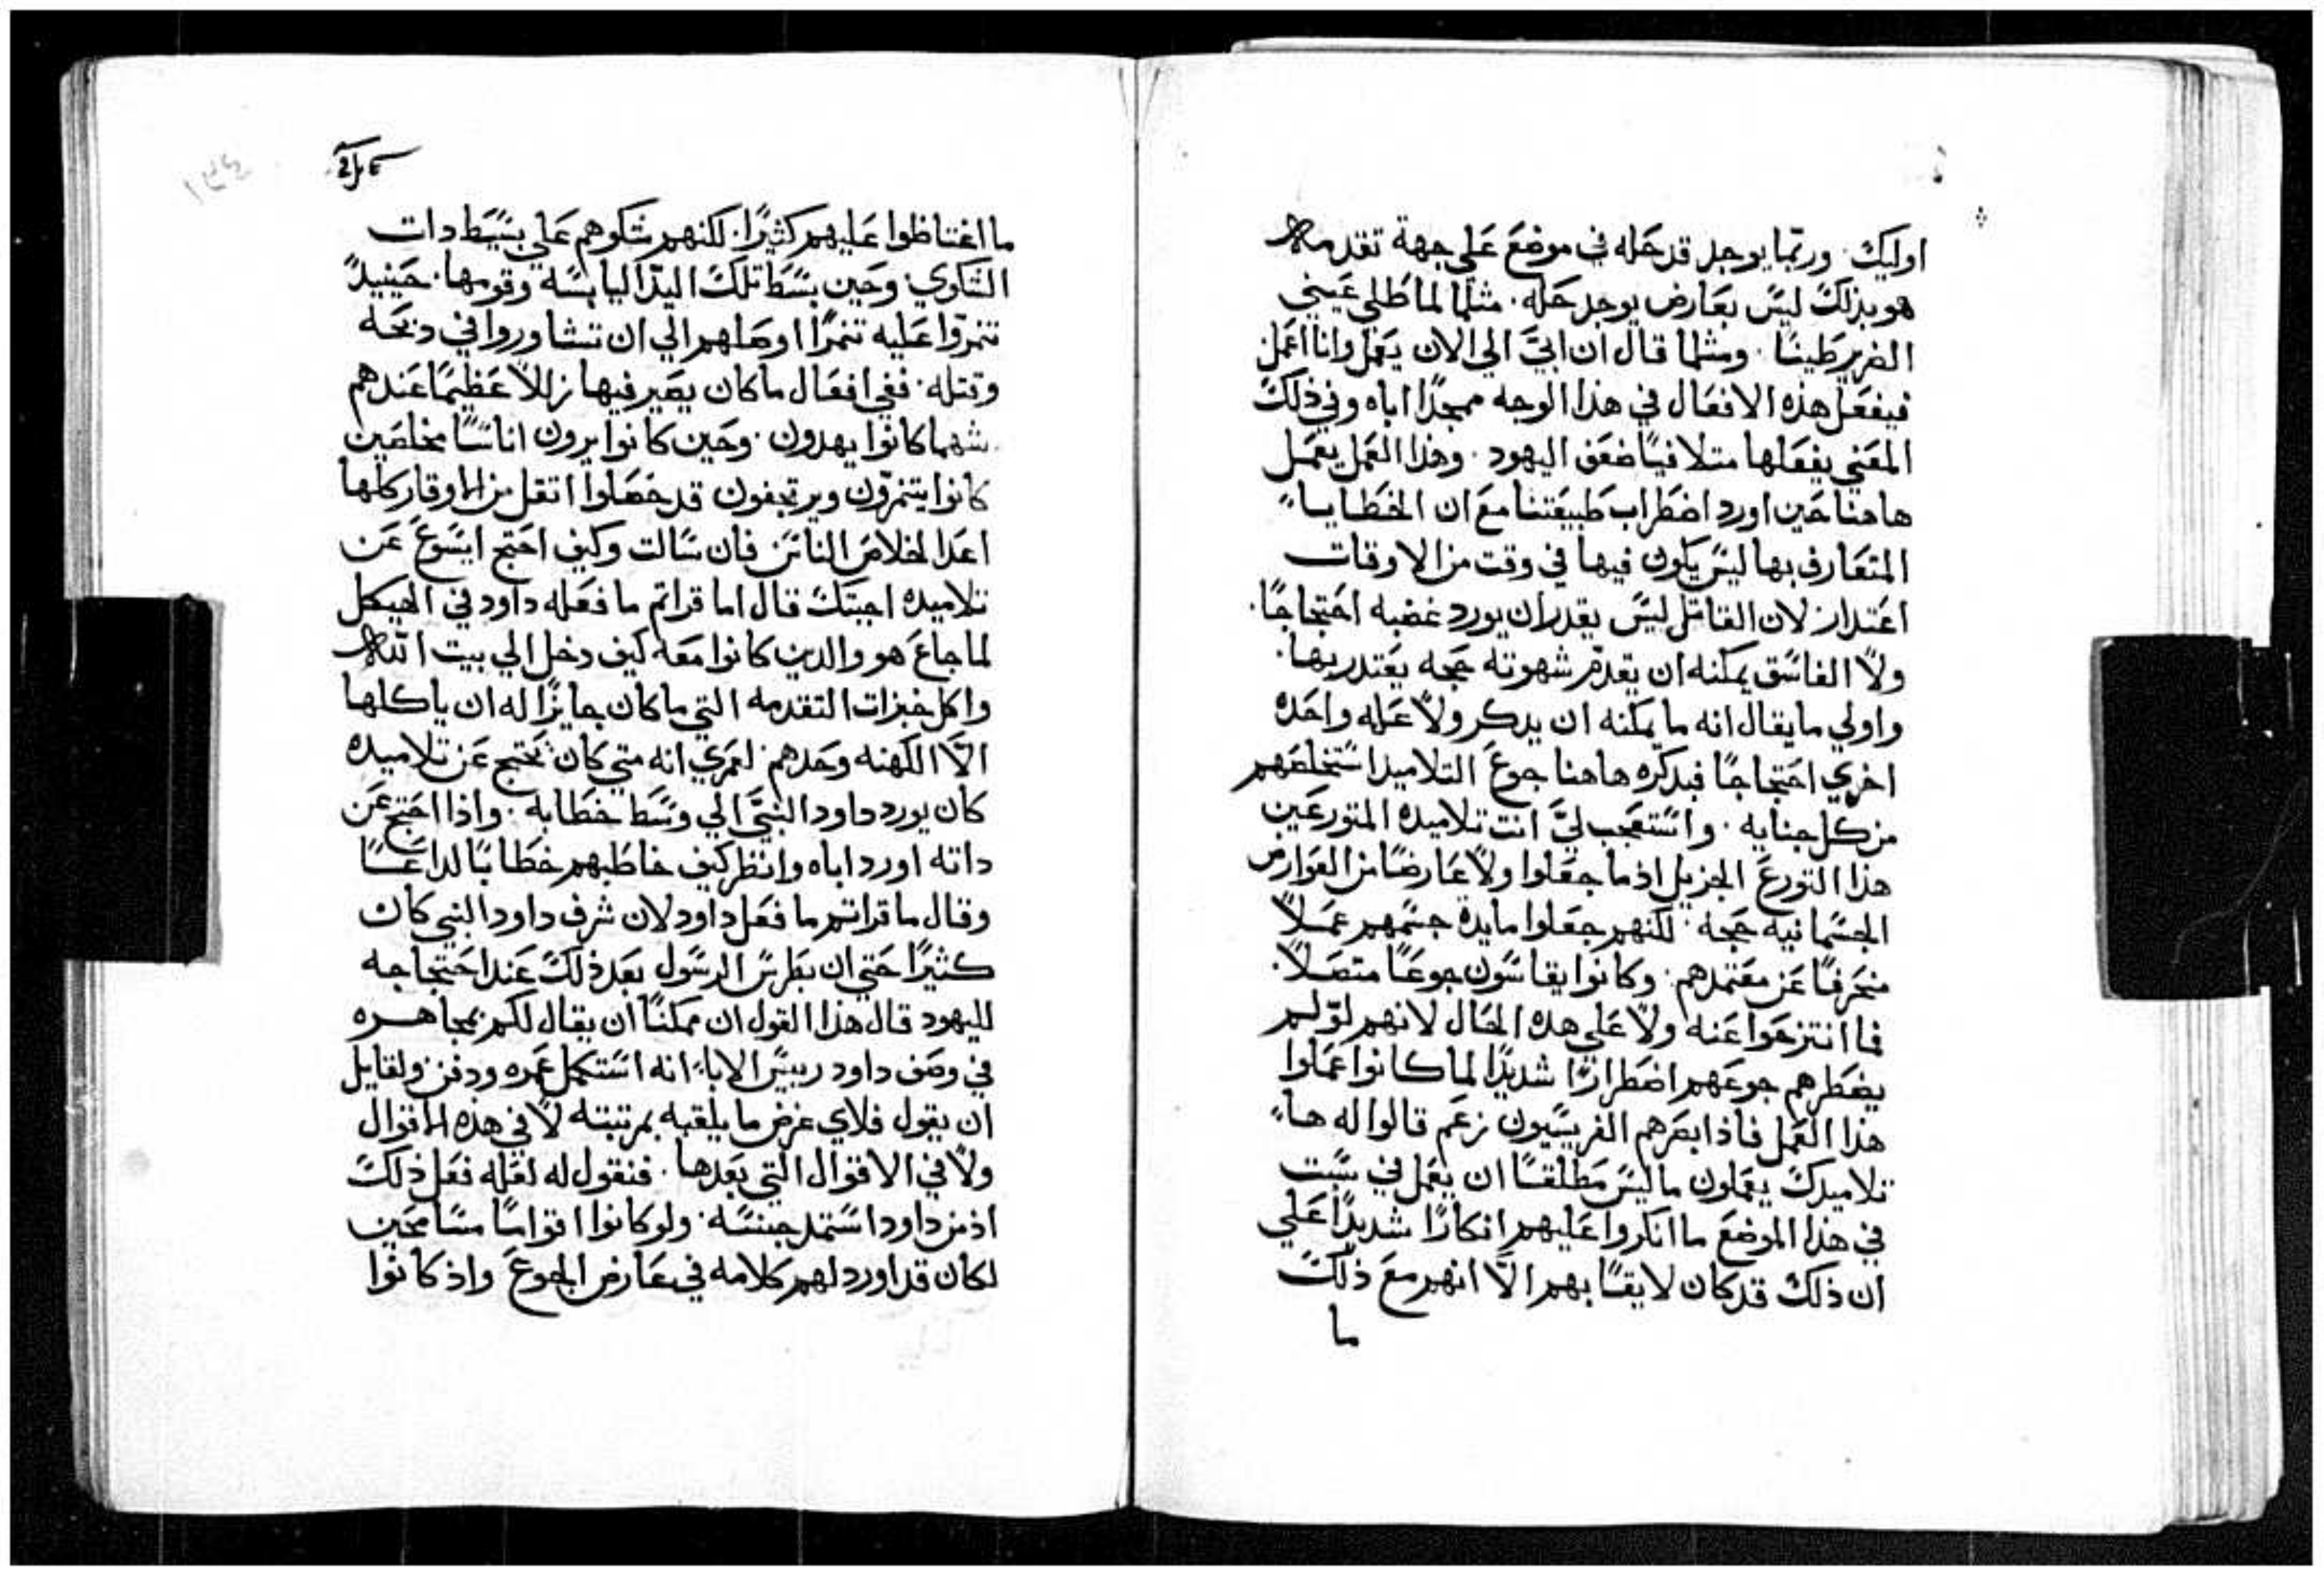 اوليك٠ وربما يوجد قد حله في موضع علي جهة تقدمه
هو بذلك ليس بعارض يوجد حله٠ مثلما لما طلي عيني
الضرير طينا٠ ومثلما قال ان ابي الي الان يعمل وانا اعمل
فيفعل هذه الافعال في هذا الوجه ممجدا اباه وفي ذلك
المعني يفعلها متلافيا ضعف اليهود٠ وهذا العمل يعمل
هاهنا حين اورد اضطراب طبيعتنا مع ان الخطايا
المتعارف بها ليس يكون فيها في وقت من الاوقات
اعتدار لان القاتل ليس يقدر ان يورد غضبه احتجاجا٠
ولا الفاسق يمكنه ان يقدم شهوته حجه يعتدر بها٠
واولي ما يقال انه ما يمكنه ان يدكر ولا عله واحده
اخري احتجاجا فبدكره هاهنا جوع التلاميد استخلصهم
من كل جنايه٠ واستعجب لي انت تلاميده المتورعين
هذا التورع الجزيل اذ ما جعلوا ولا عارضا من العوارض
الجسمانيه حجه٠ لكنهم جعلوا مايدة جسمهم عملا
منحرفا عن معتمدهم٠ وكانوا يقاسون جوعا متصلا٠
فما انتزحوا عنه ولا علي هده الحال لانهم لو لم
يضطرهم جوعهم اضطرارا شديدا لما كانوا عملوا
هذا العمل فاذا بصرهم الفريسيون زعم قالوا له ها
تلاميدك يعملون ما ليس مطلقا ان يعمل في سبت
في هذا الموضع ما انكروا عليهم انكارا شديدا علي
ان ذلك قد كان لايقا بهم الا انهم مع ذلك
ما
ما اغتاظوا عليهم كثيرا٠ لكنهم شكوهم علي بسيط دات
الشكوي٠ وحين بسط تلك اليد اليابسه وقومها٠ حينيد
تنمروا عليه تنمرا اوصلهم الي ان تشاوروا في دبحه
وقتله٠ ففي افعال ما كان يصير فيها زللا عظيما عندهم
شهما كانوا يهدون٠ وحين كانوا يرون اناسا مخلصين
كانوا يتنمرون ويرتجفون قد حصلوا اتقل من الاوقار كلها
اعدا لخلاص الناس فان سالت وكيف احتج ايسوع عن
تلاميده اجبتك قال اما قراتم ما فعله داود في الهيكل
لما جاع هو والدين كانوا معه كيف دخل الي بيت الله
واكل خبزات التقدمه التي ما كان جايزا له ان ياكلها
الا الكهنه وحدهم لعمري انه متي كان يحتج عن تلاميده
كان يورد داود النبي الي وسط خطابه٠ واذا احتج عن
داته اورد اباه وانظر كيف خاطبهم خطابا لداعسا
وقال ما قراتم ما فعل داود لان شرف داود النبي كان
كثيرا حتي ان بطرس الرسول بعد ذلك عند احتجاجه
لليهود قال هذا القول ان ممكنا ان يقال لكم بمجاهره
في وصف داود رييس الابا انه استكمل عمره ودفن ولقايل
ان يقول فلاي غرض ما يلقبه بمرتبته لا في هذه الاقوال
ولا في الاقوال التي بعدها٠ فنقول له لعله فعل ذلك
اذ من داود استمد جنسه٠ ولو كانوا اقواما مسامحين
لكان قد اورد لهم كلامه في عارض الجوع واذ كانوا